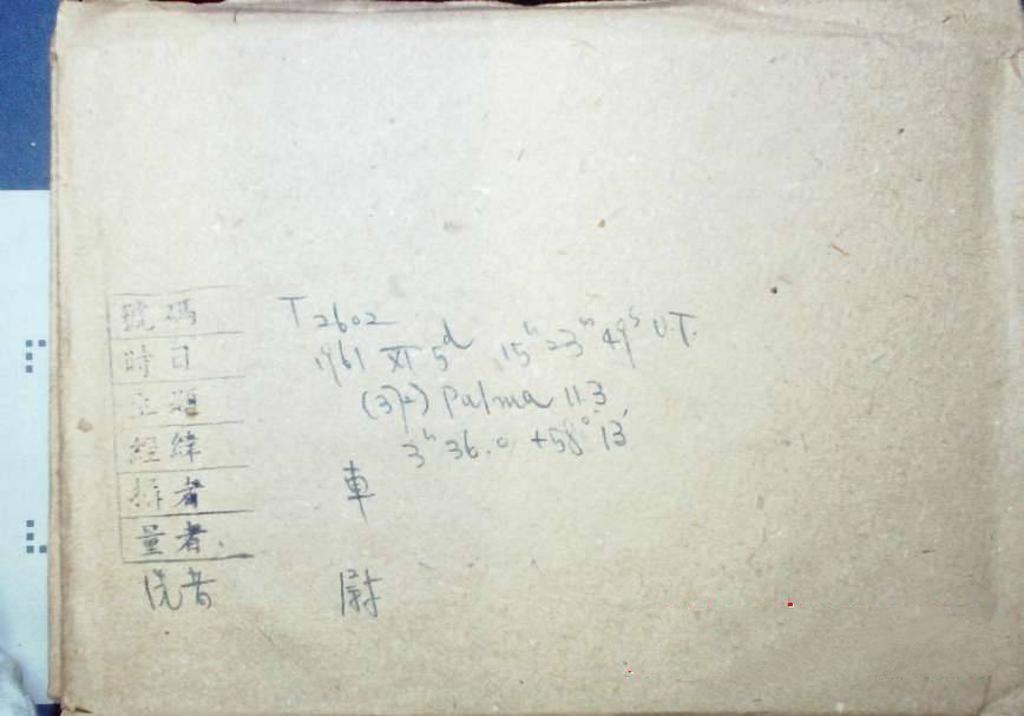 號碼 T2602
時日 1961 XI 5d 15h 23m 49s U.T.
主題 (372) Palma 11.3
經緯 3h 36.0 +58° 13'
攝者 車
量者
洗者 尉